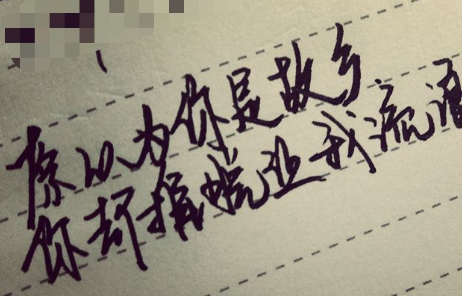 原以为你是故乡
你却 我流浪